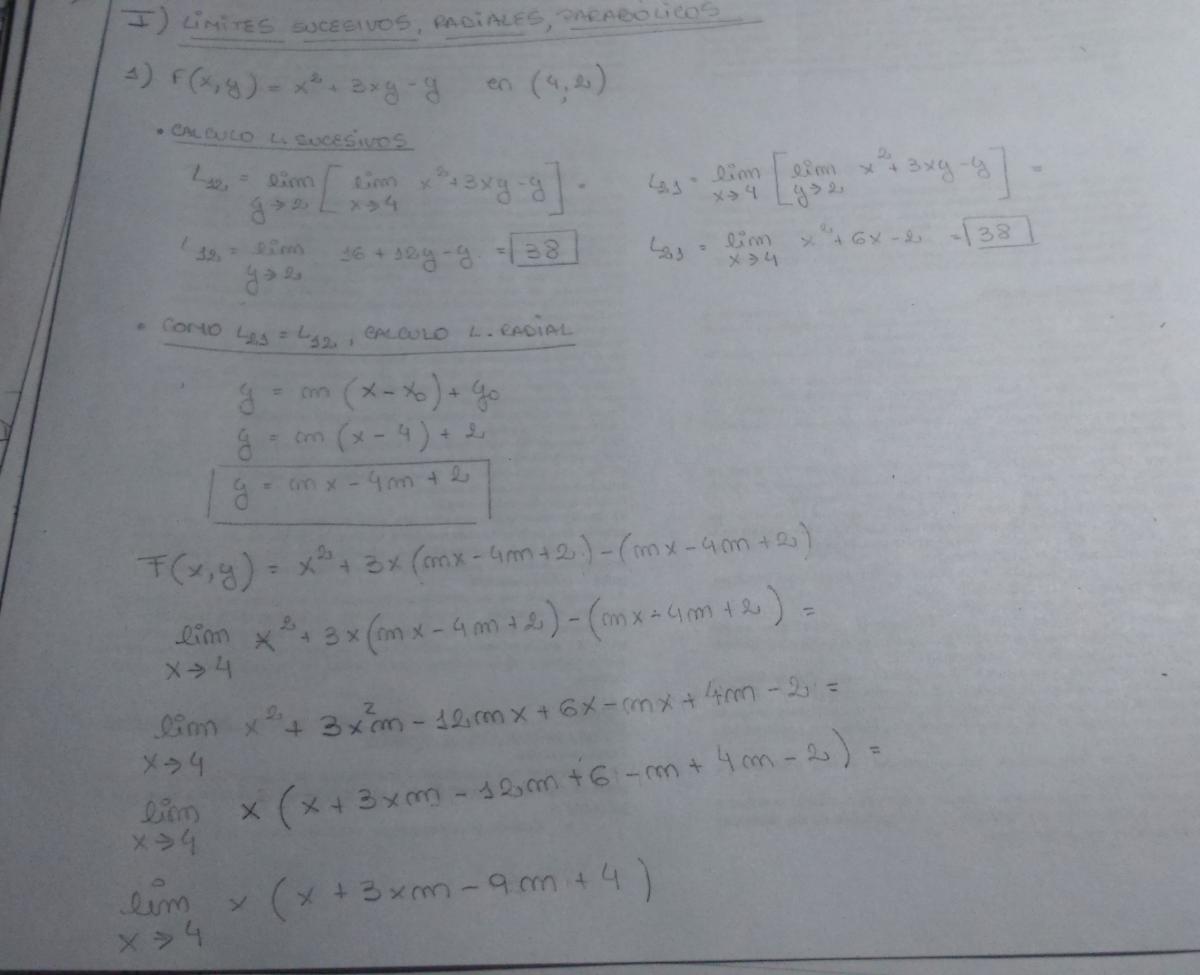 I) LÍMITES SUCESIVOS, RADIALES, PARABÓLICOS
1) F(x,y) = x² + 3xy - y en (4,2)
• CALCULO L. SUCESIVOS
L₁₂ = lim y→2 [ lim x→4 x² + 3xy - y ] = L₂₁ = lim x→4 [ lim y→2 x² + 3xy - y ] =
L₁₂ = lim y→2 16 + 12y - y = 38 L₂₁ = lim x→4 x² + 6x - 2 = 38
• COMO L₂₁ = L₁₂, CALCULO L. RADIAL
y = m (x - x₀) + y₀
y = m (x - 4) + 2
y = mx - 4m + 2
F(x,y) = x² + 3x (mx - 4m + 2) - (mx - 4m + 2)
lim x→4 x² + 3x (mx - 4m + 2) - (mx - 4m + 2) =
lim x→4 x² + 3x²m - 12mx + 6x - mx + 4m - 2 =
lim x→4 x (x + 3xm - 12m + 6 - m + 4m - 2) =
lim x→4 x (x + 3xm - 9m + 4)